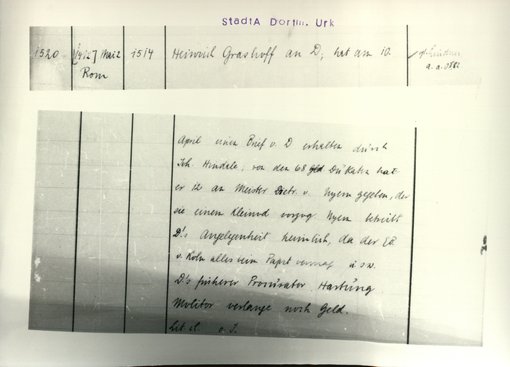 StadtA Dortm. Urk
1520 [1412] Mai 2 1514 Heinrich Grashoff an D, hat am 10.
Rom a. a. O.
April einen Brief v. D erhalten durch
Joh. Hindale, von den 68 Dukaten hat
er 12 an Meister Dietr. v. Nyem gegeben, der
sie einem Kleinod vorzog. Nyem betreibt
D's Angelegenheit heimlich, da der EB
v. Köln alles beim Papst vermag usw.
D's früherer Prokurator Hartung
Molitor verlange noch Geld.
Lit. cl. o. J.